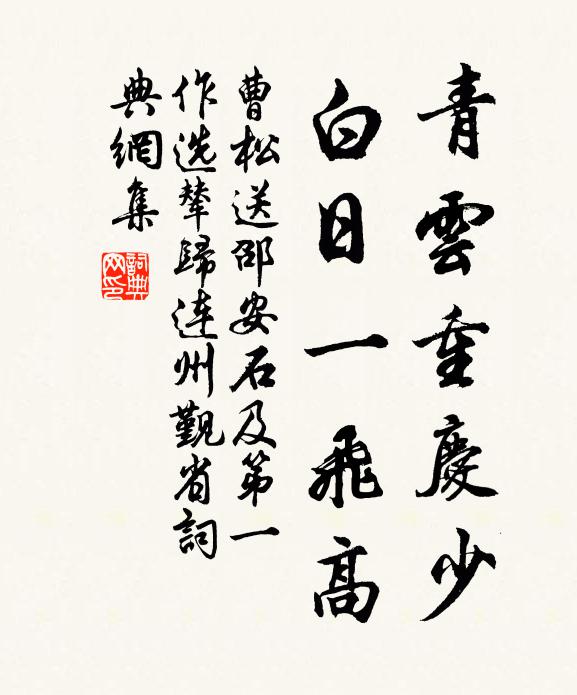 青雲重慶少
白日一飛高
曹松送邵安石及第一
作选輦歸連州覲省詞
典網集
詞典
网印